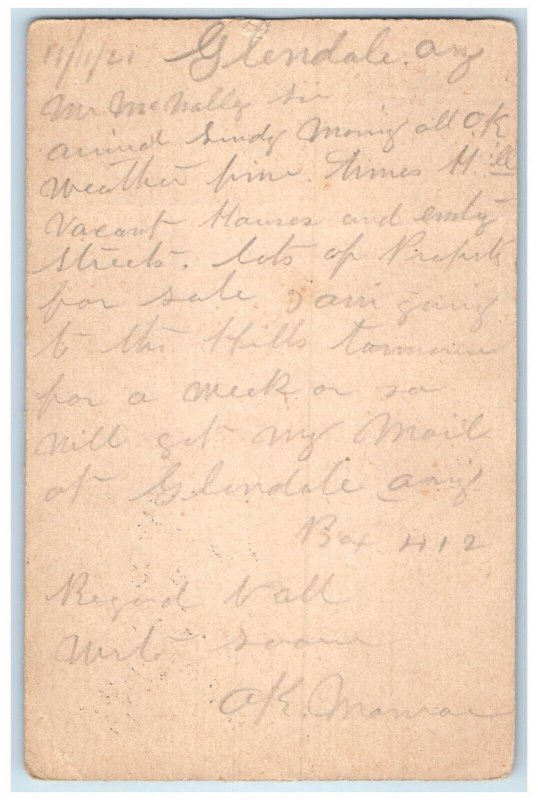 11/11/21 Glendale. Ariz
Mr McNally Sir
arrived Sundy Morning all OK
Weather fine. times Hill
Vacant Houses and emty
Streets. lots of Proprty
for sale. I am going
to the Hills tommorow
for a week or so
Will get my Mail
at Glendale Ariz
Box 412
Regard to all
Write soone
OK.